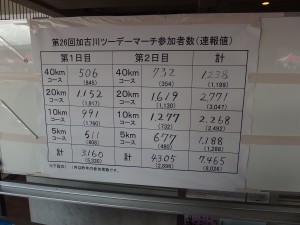 第26回加古川ツーデーマーチ参加者数(速報値)
第1日目 第2日目 計
40kmコース 506 (845) 40kmコース 732 (354) 1,238 (1,199)
20kmコース 1,152 (1,917) 20kmコース 1,619 (1,130) 2,771 (3,047)
10kmコース 991 (1,760) 10kmコース 1,277 (732) 2,268 (2,492)
5kmコース 511 (808) 5kmコース 677 (480) 1,188 (1,288)
計 3160 (5,330) 計 4305 (2,696) 7,465 (8,026)